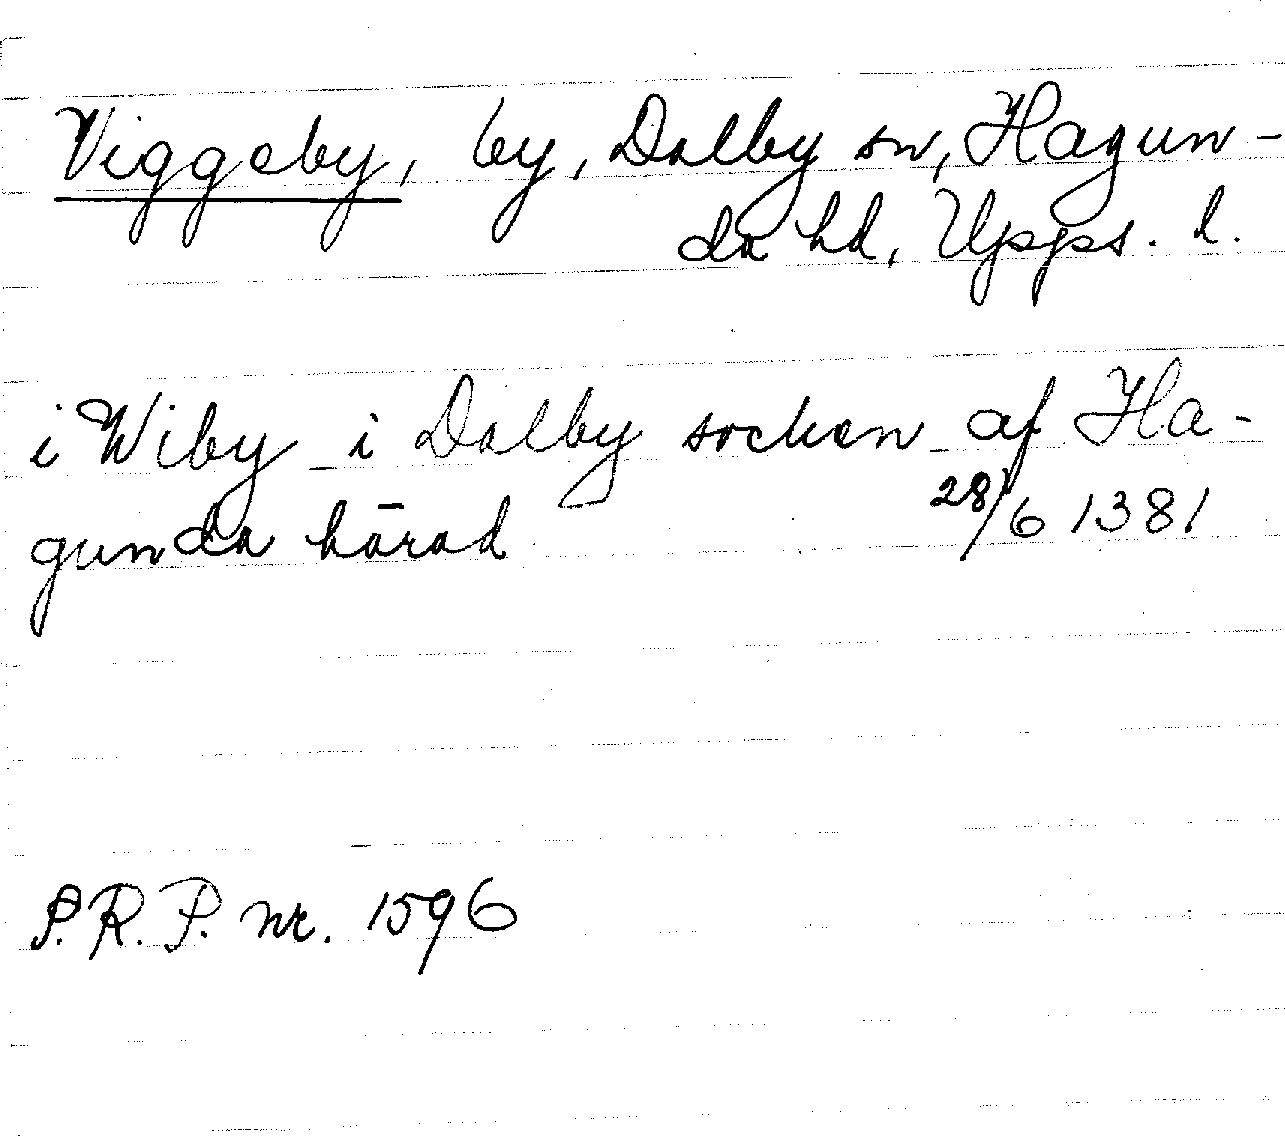 Viggeby, by, Dalby sn, Hagun-
da hd, Upps. l.
i Wiby i Dalby socken af Ha-
gunda härad 28/6 1381
P.R.P. nr. 1596